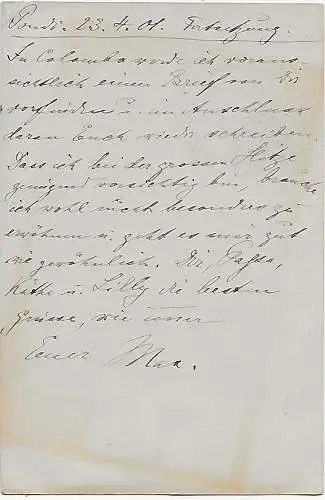 Pondi. 23.4.01. Fortsetzung.
In Colombo werde ich voraus-
sichtlich einen Brief von Dir
vorfinden u. im Anschluss
daran Euch wieder schreiben.
Dass ich bei der grossen Hitze
genügend vorsichtig bin, brauche
ich wohl nicht besonders zu
erwähnen u. geht es mir gut
wie gewöhnlich. Dir, Papa,
Käthe u. Lilly die besten
Grüsse, wie immer
Euer Max.